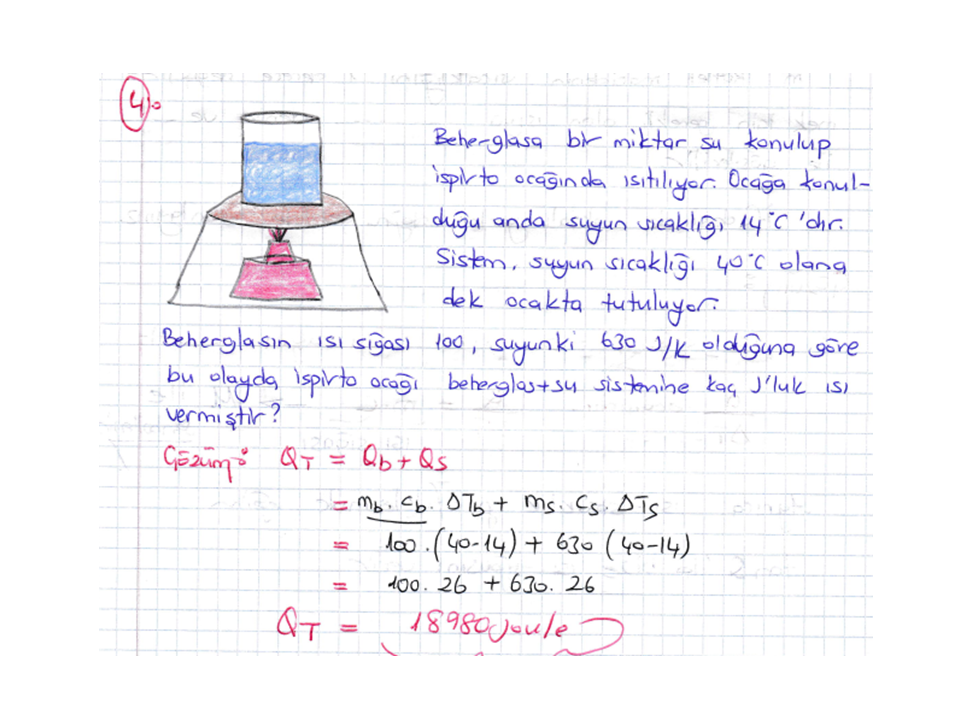 4).
Beherglasa bir miktar su konulup
ispirto ocağında ısıtılıyor. Ocağa konul-
duğu anda suyun sıcaklığı 14°C 'dır.
Sistem, suyun sıcaklığı 40°C olana
dek ocakta tutuluyor.
Beherglasın ısı sığası 100, suyunki 630 J/K olduğuna göre
bu olayda ispirto ocağı beherglas+su sistemine kaç J'luk ısı
vermiştir?
Çözüm: QT = Qb + Qs
= mb . cb . ΔTb + ms . cs . ΔTs
= 100 . (40-14) + 630 (40-14)
= 100 . 26 + 630 . 26
QT = 18980 joule